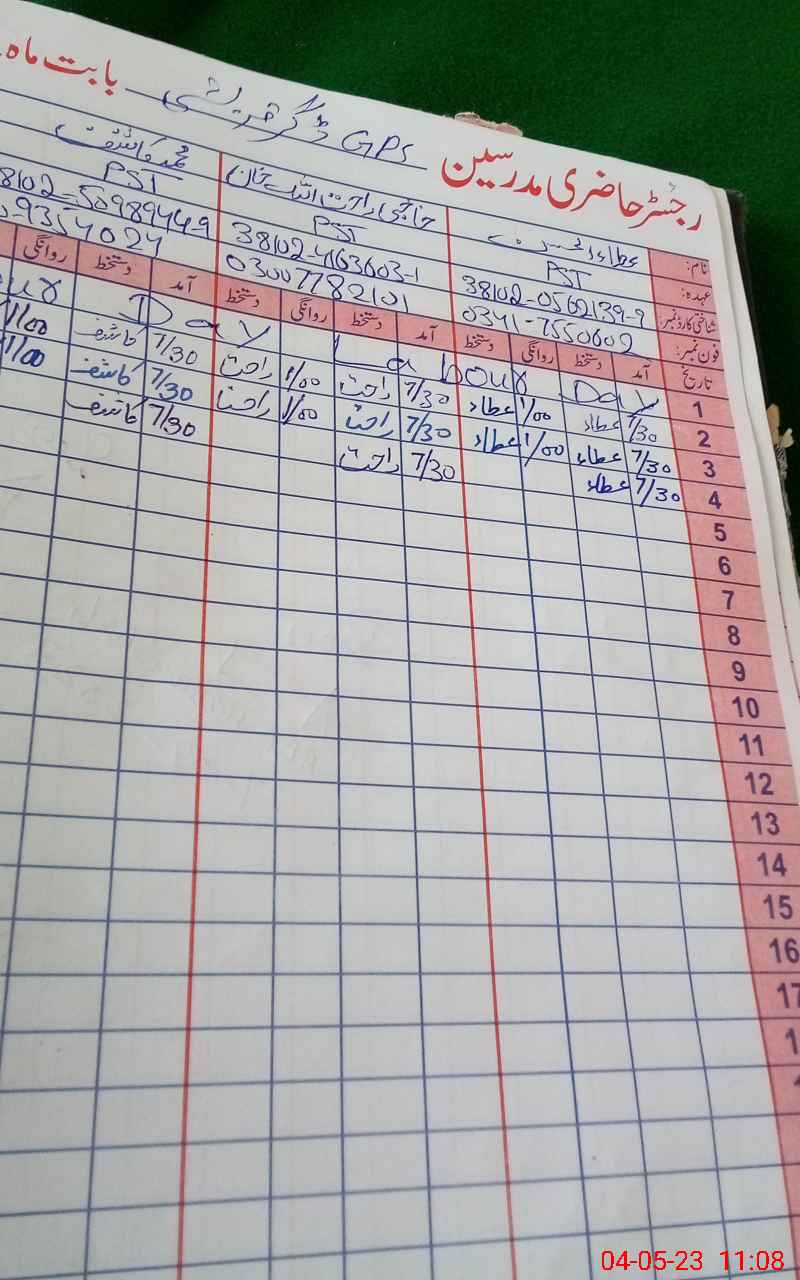 رجسٹر حاضری مدرسین GPS ڈگر قریشی بابت ماہ
نام: عطاء راحت اللہ خان محمد کاشف
عہدہ: PST PST PST
شناختی کارڈ نمبر: 38102-0562139-9 38102-4163603-1 38102-5098944-9
فون نمبر: 0341-7550602 03007782101 9354024
تاریخ آمد دستخط روانگی دستخط آمد دستخط روانگی دستخط آمد دستخط روانگی
1 Labour Day Labour Day
2 7/30 عطاء 1/00 عطاء 7/30 راحت 1/00 راحت 7/30 کاشف 1/00
3 7/30 عطاء 1/00 عطاء 7/30 راحت 1/00 راحت 7/30 کاشف 1/00
4 7/30 عطاء 7/30 راحت 7/30 کاشف
5
6
7
8
9
10
11
12
13
14
15
16
17
04-05-23 11:08